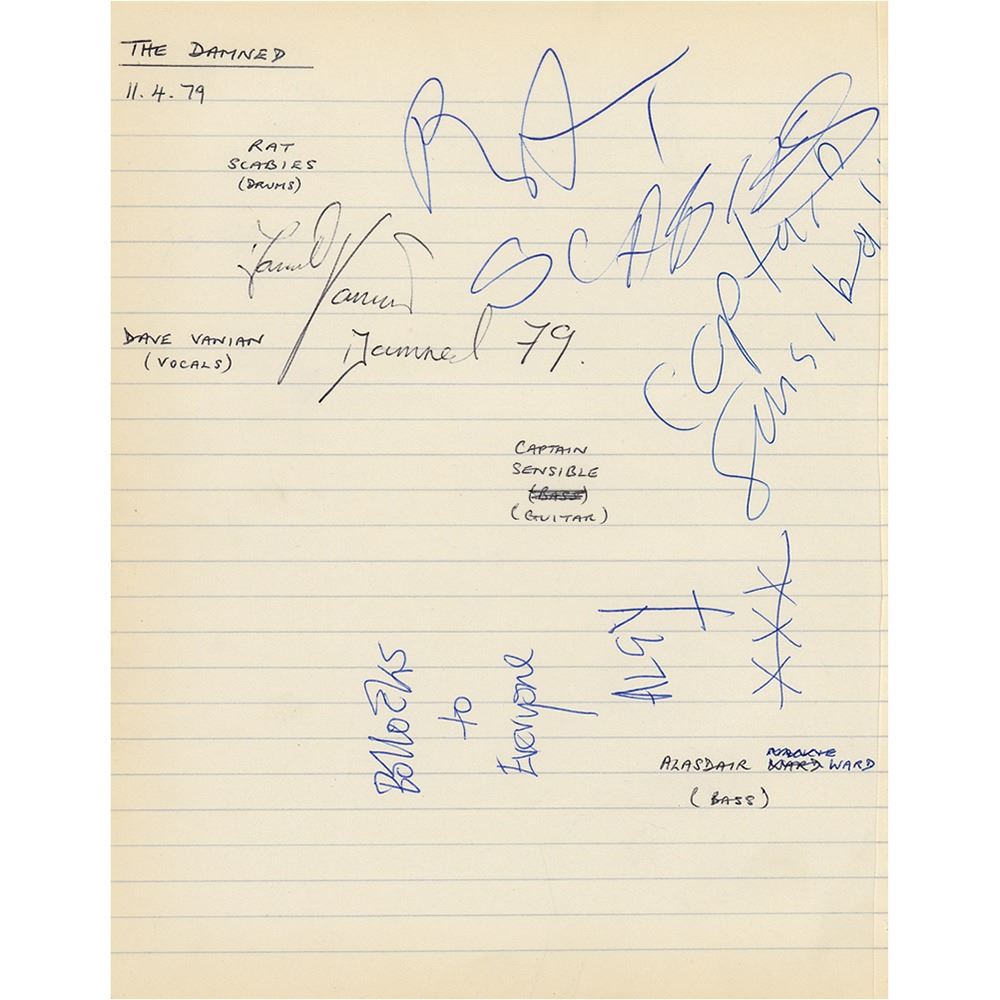 THE DAMNED
11.4.79
RAT
SCABIES
(DRUMS)
RAT
SCABIES
Vanian
Damned 79.
DAVE VANIAN
(VOCALS)
Captain
Sensi
CAPTAIN
SENSIBLE
(BASS)
(GUITAR)
ALGY
XXX
Bollocks
to
Everyone
ALASDAIR WARD
(BASS)